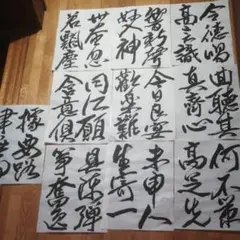 曲聽其
真齊心
令德唱
高言識
響新聲
妙入神
世奄忽
若飆塵
今日良宴
會歡樂難
同所願
含意俱
何不策
高足先
未申人
生寄一
具陳彈
箏奮逸
據要路